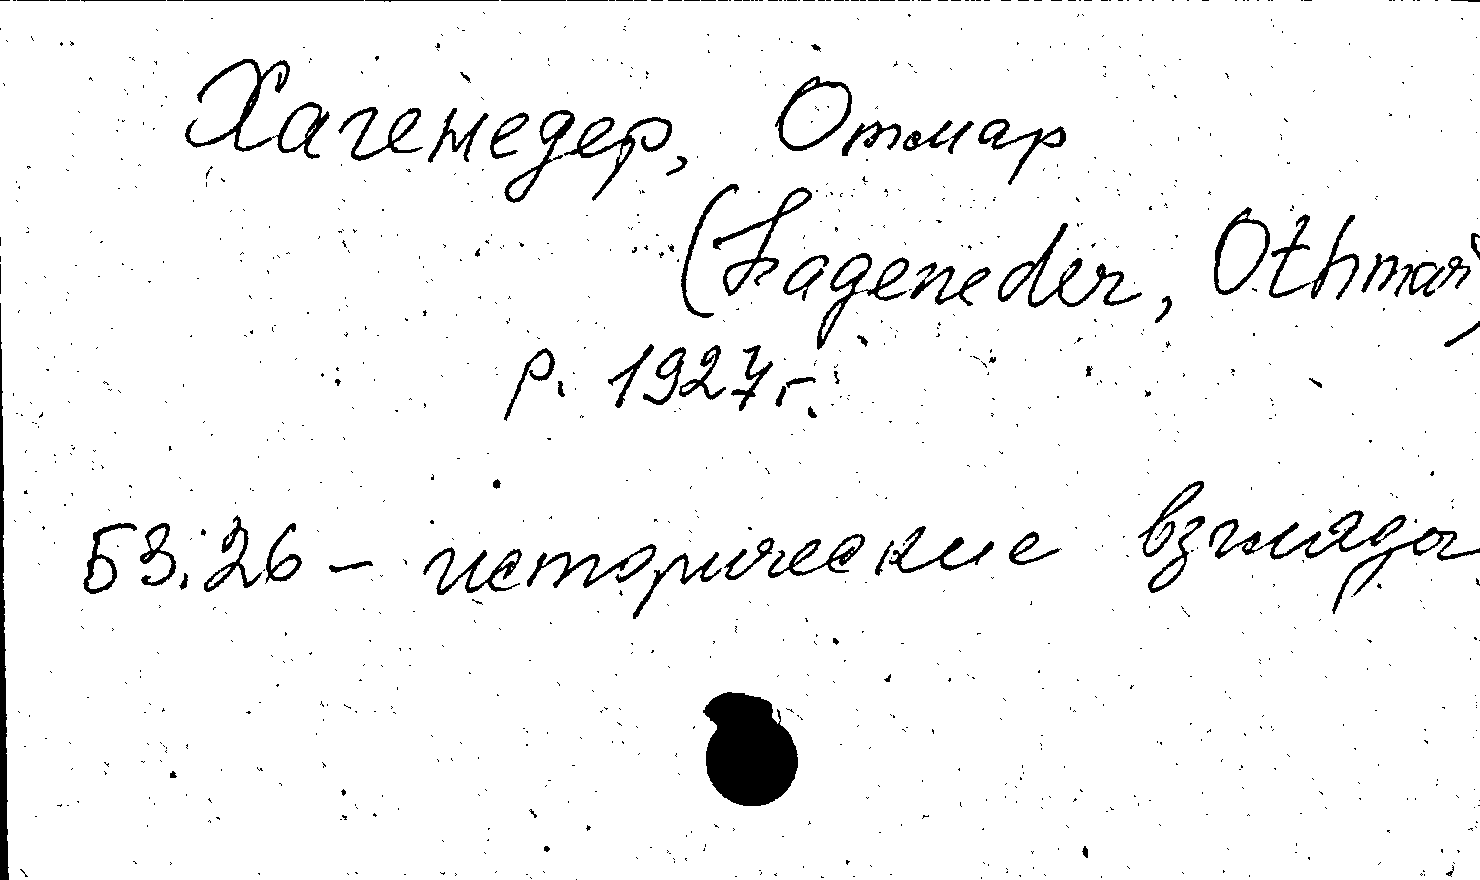 Хагенедер, Отмар
(Hageneder, Othmar)
р. 1927 г.
Б3.26 – исторические взгляды